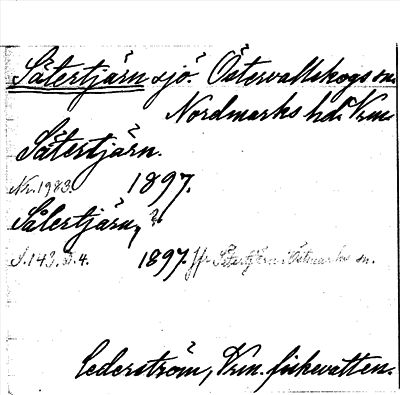 Sätertjärn sjö. Östervallskogs sn.
Nordmarks hd. Vrm.
Sätertjärn.
Nr. 1983. 1897.
Sälertjärn,?
S. 143. D. 4. 1897. Jfr Sätertjärn i Östmarks sn.
Cederström, Vrm. fiskevatten.